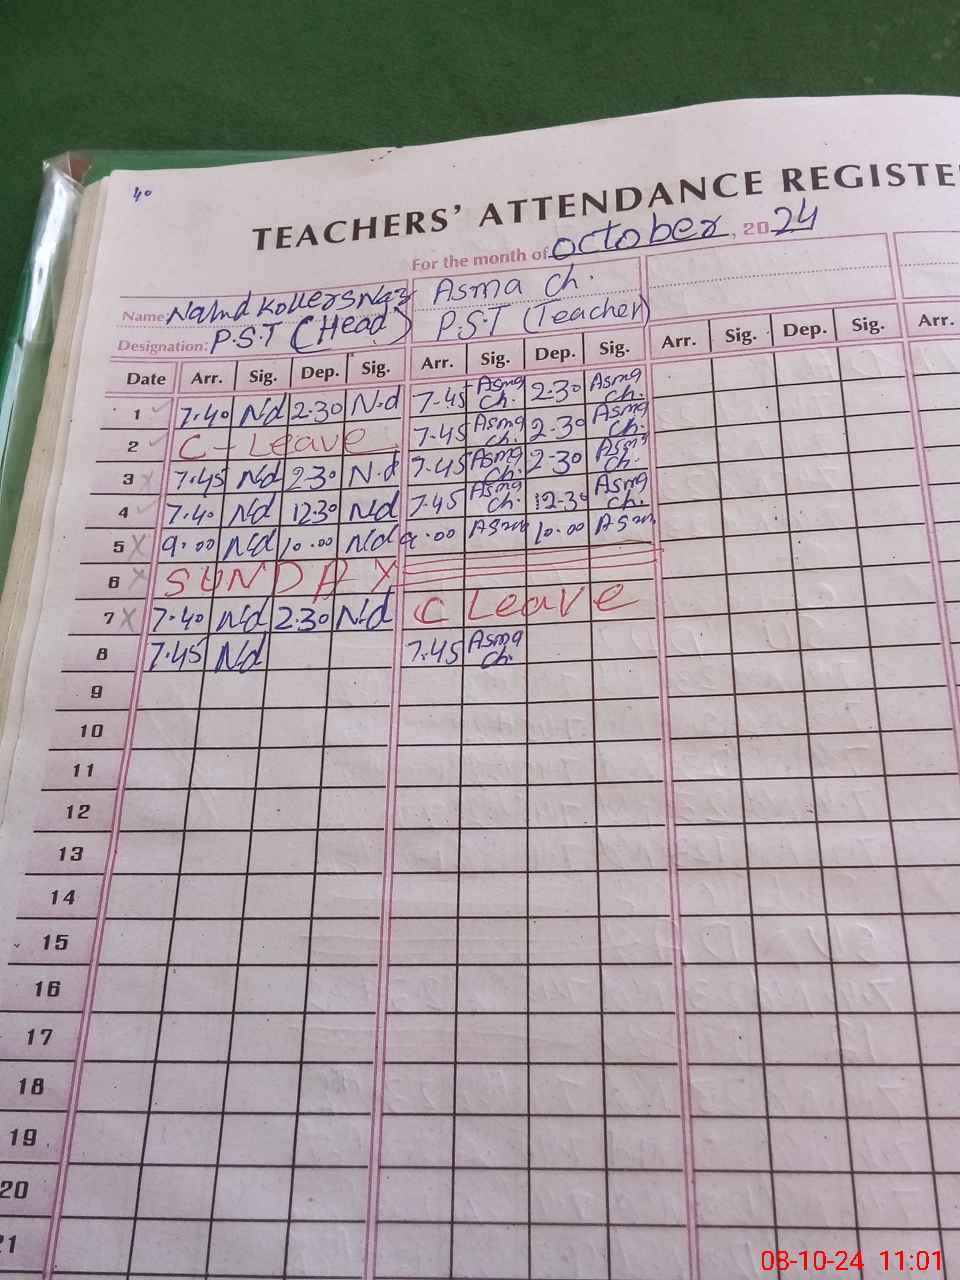 40
TEACHERS' ATTENDANCE REGISTE
For the month of october, 2024
Name: Asma Ch.
Designation: P.S.T (Head) P.S.T (Teacher)
Date Arr. Sig. Dep. Sig. Arr. Sig. Dep. Sig. Arr. Sig. Dep. Sig. Arr.
1 7.40 N.d 2.30 N.d 7.45 Asma Ch. 2.30 Asma Ch.
2 C - Leave 7.45 Asma Ch. 2.30 Asma Ch.
3 7.45 N.d 2.30 N.d 7.45 Asma Ch. 2.30 Asma Ch.
4 7.40 N.d 12.30 N.d 7.45 Asma Ch. 12.30 Asma Ch.
5 9.00 N.d 10.00 N.d 9.00 Asma 10.00 Asma
6 SUNDAY
7 7.40 N.d 2.30 N.d C Leave
8 7.45 N.d 7.45 Asma Ch.
9
10
11
12
13
14
15
16
17
18
19
20
21
08-10-24 11:01